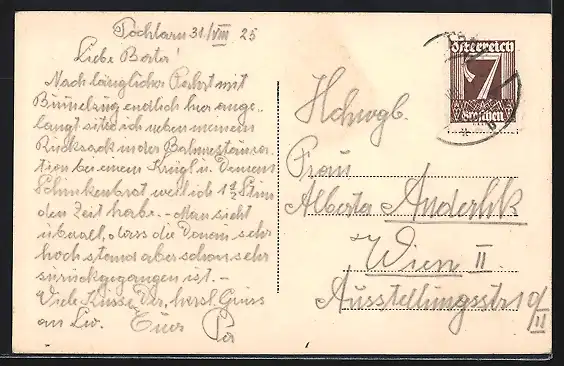 Pöchlarn 31./VIII 25
Liebe Berta!
Nach länglicher Fahrt mit
Bummelzug endlich hier ange-
langt sitze ich neben meinem
Rucksack in der Bahnrestaura-
tion bei einem Krügl u. Deinem
Schinkenbrot weil ich 1 1/2 Stun
den Zeit habe. - Man sieht
überall, dass die Donau sehr
hoch stand aber schon sehr
zurückgegangen ist. -
Viele Küsse Dir, herzl. Gruss
an Lw. Euer
Österreich
7
Groschen
Hchwgb.
Frau
Alberta Anderlik
Wien II.
Ausstellungsstr 10/
II